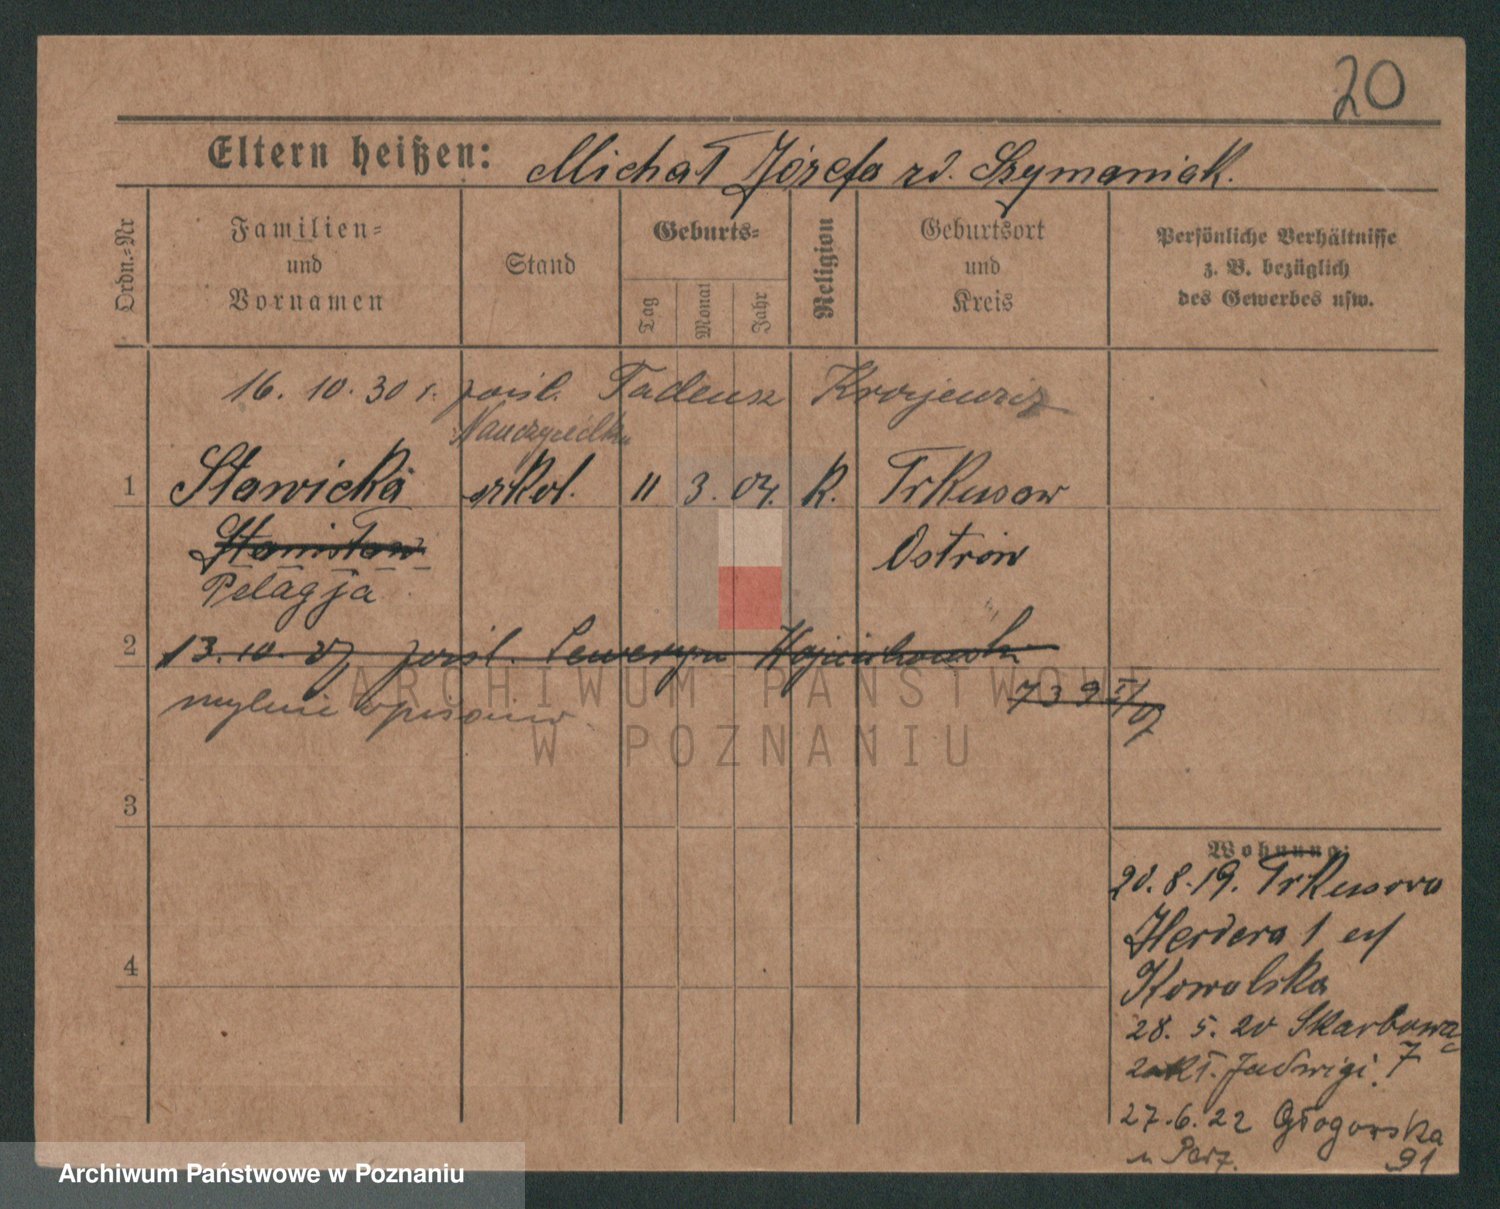 20
Eltern heißen: Michał Józefa zd. Szymaniak.
Ordn.-Nr
Familien-
und
Vornamen
Stand
Geburts-
Tag
Monat
Jahr
Religion
Geburtsort
und
Kreis
Persönliche Verhältnisse
z. B. bezüglich
des Gewerbes usw.
16. 10. 30 r. pośl. Tadeusz
Nauczycielka
1 Sławicka szkol. 11 3. 04. k. Trkusow
Stanisław Ostrów
Pelagja
2 13. 10. 07 pośl. Seweryn
739
mylnie wpisano
ARCHIWUM PAŃSTWOWE
W POZNANIU
3
4
Wohnung:
20. 8. 19. Trkusowo
Herdera 1
Kowalska
28. 5. 20 Skarbowa
7
zakł. Jadwigi.
27. 6. 22 Głogowska
u 91
Archiwum Państwowe w Poznaniu